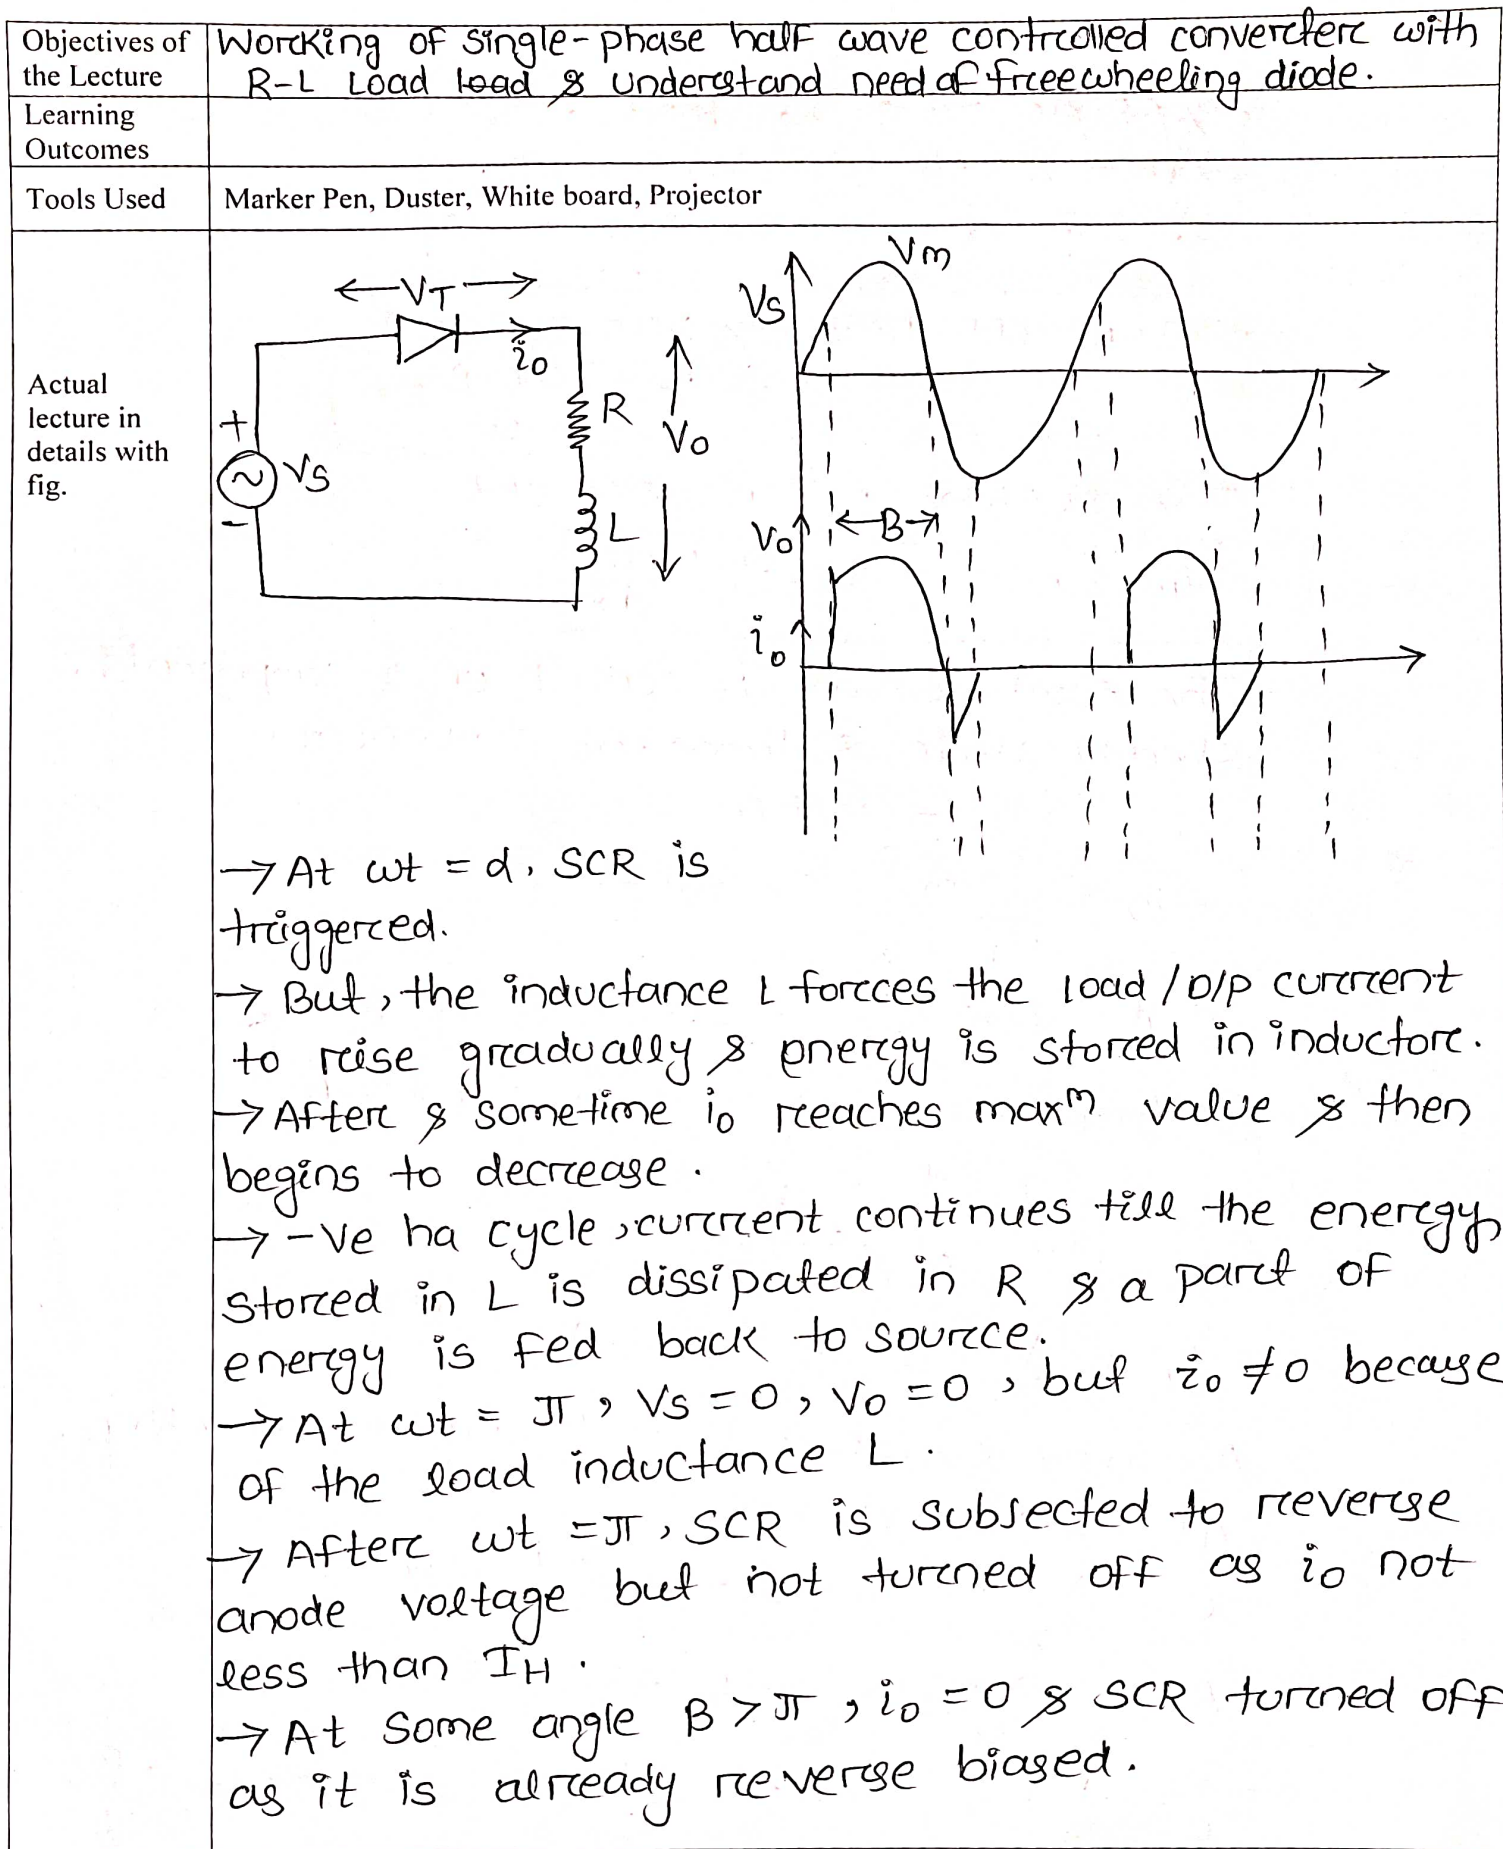 Objectives of the Lecture
Working of single-phase half wave controlled converter with
R-L Load load & understand need of freewheeling diode.
Learning Outcomes
Tools Used
Marker Pen, Duster, White board, Projector
Actual lecture in details with fig.
VT
i0
R
L
V0
+
VS
-
VS
Vm
V0
B
i0
→ At wt = α, SCR is
triggered.
→ But, the inductance L forces the load / O/P current
to rise gradually & energy is stored in inductor.
→ After & sometime i0 reaches maxm value & then
begins to decrease.
→ -Ve ha cycle, current continues till the energy,
stored in L is dissipated in R & a part of
energy is fed back to source.
→ At wt = π, VS = 0, V0 = 0, but i0 ≠ 0 because
of the load inductance L.
→ After wt = π, SCR is subjected to reverse
anode voltage but not turned off as i0 not
less than IH.
→ At some angle B > π, i0 = 0 & SCR turned off
as it is already reverse biased.